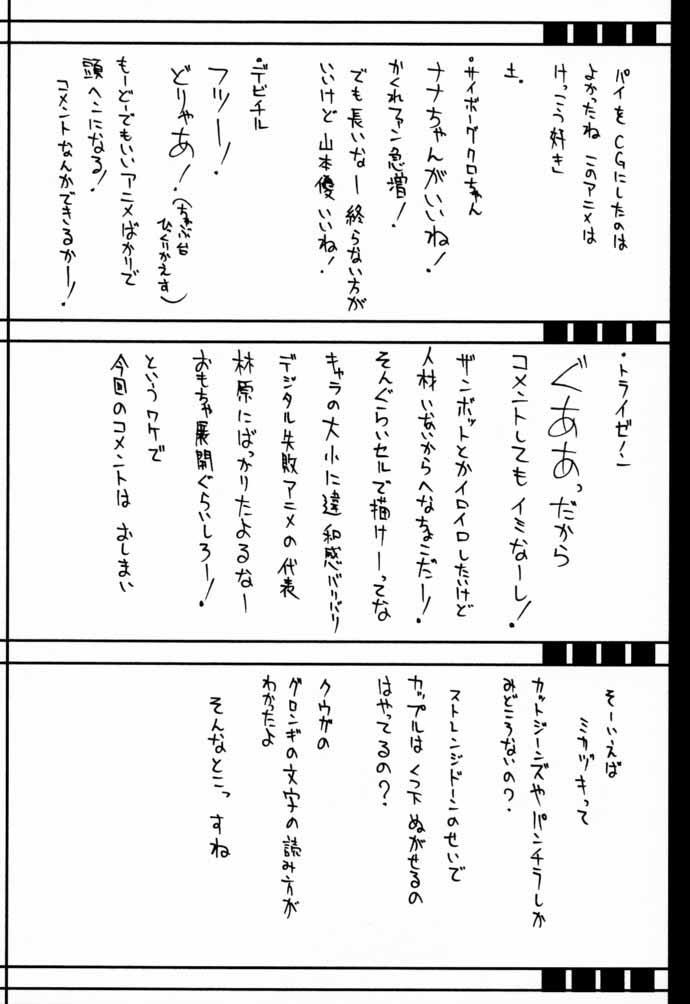 パイをCGにしたのは
よかったね このアニメは
けっこう好き」
土.
・サイボーグクロちゃん
ナナちゃんがいいね!
かくれファン急増!
でも長いなー 終らない方が
いいけど 山本優いいね!
・デビチル
フッツー!
どりゃあ!(ちゃぶ台
ひっくりかえす)
もーどーでもいいアニメばかりで
頭ヘンになる!
コメントなんかできるかー!
・トライゼノン
ぐああっだから
コメントしてもイミなーし!
ザンボットとかイロイロしたいけど
人材いないからへなちょこだー!
そんぐらいセルで描けーってな
キャラの大小に違和感バリバリ
デジタル失敗アニメの代表
林原にばっかりたよるなー
おもちゃ展開ぐらいしろー!
というワケで
今回のコメントは おしまい
そーいえば
ミカヅキって
カットジーンズや パンチラしか
みどころないの?
ストレンジドーンのせいで
カップルは くつ下 ぬがせるの
はやってるの?
クウガの
グロンギの文字の読み方が
わかったよ
そんなとこっ すね